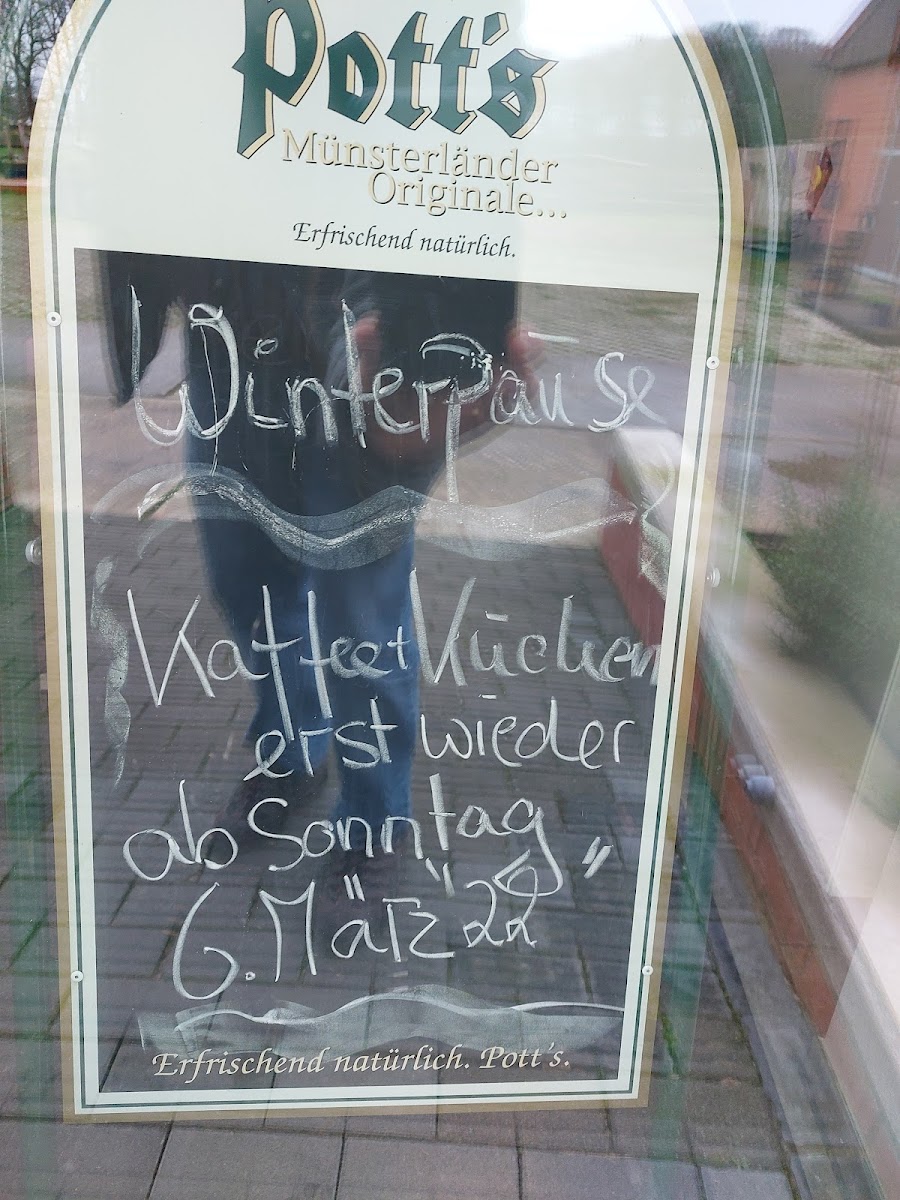 Pott's
Münsterländer
Originale...
Erfrischend natürlich.
Winterpause
Kaffee + Küchen
erst wieder
ab Sonntag
6. März "22"
Erfrischend natürlich. Pott's.